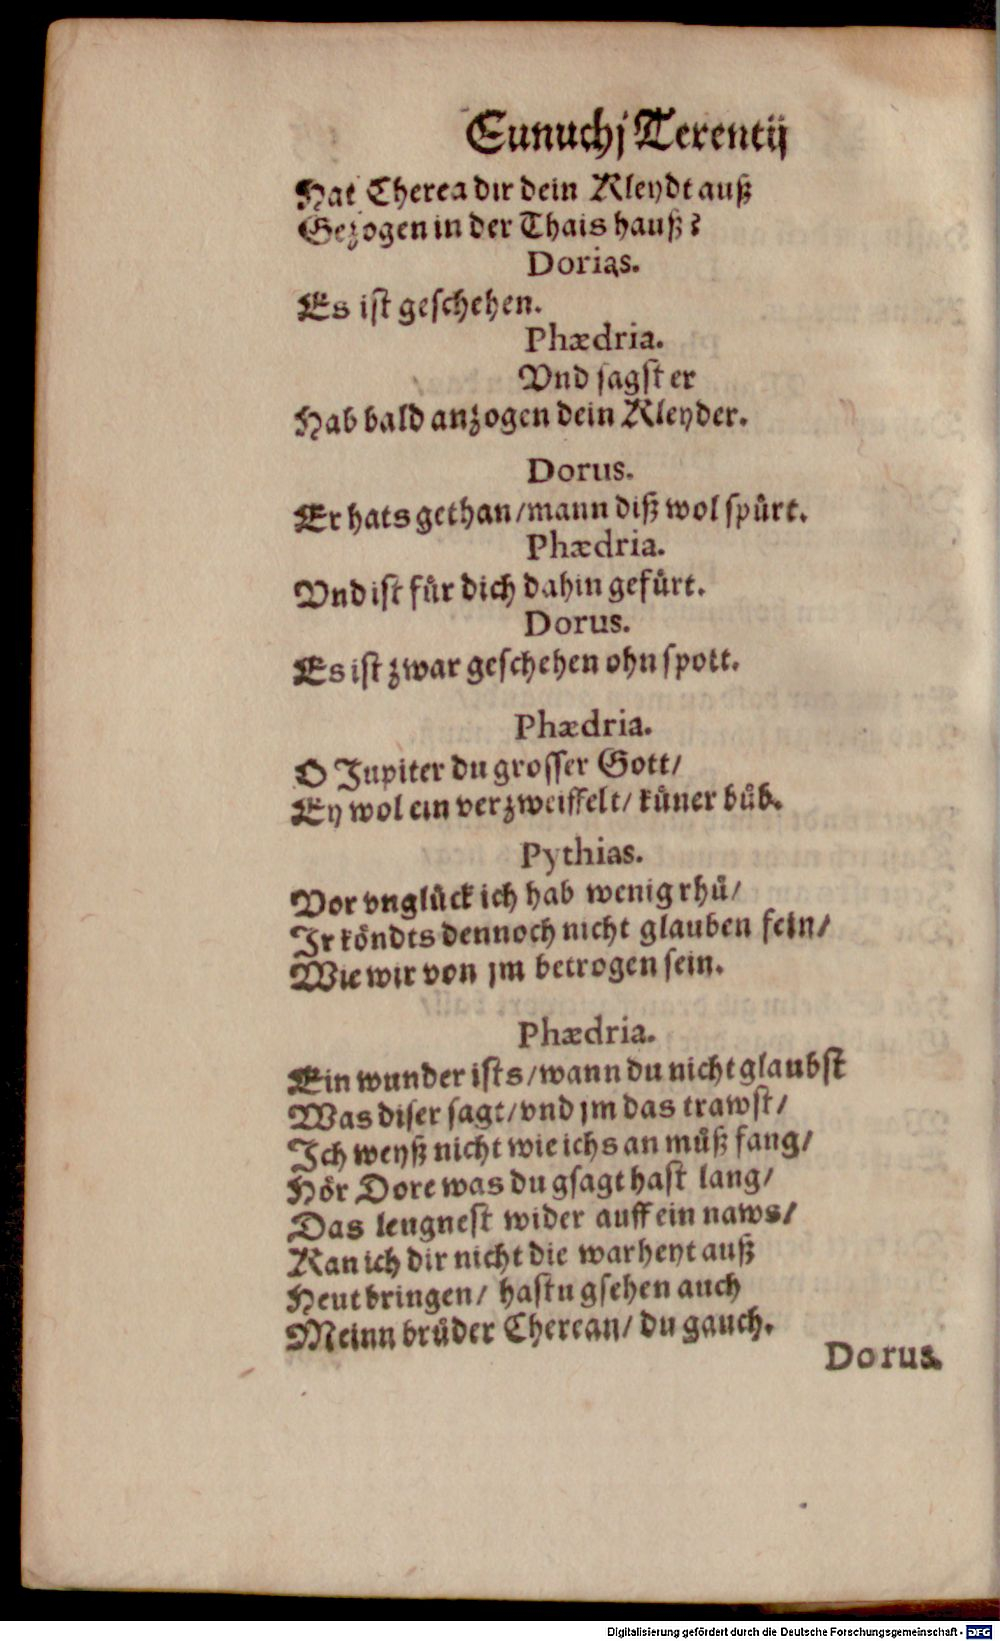 Eunuchj Terentij
Hat Cherea dir dein Kleydt auß
Gezogen in der Thais hauß?
Dorias.
Es ist geschehen.
Phædria.
Vnd sagst er
Hab bald anzogen dein Kleyder.
Dorus.
Er hats gethan/mann diß wol spürt.
Phædria.
Vnd ist für dich dahin gefürt.
Dorus.
Es ist zwar geschehen ohn spott.
Phædria.
O Jupiter du grosser Gott/
Ey wol ein verzweiffelt/ küner büb.
Pythias.
Vor vnglück ich hab wenig rhü/
Jr köndts dennoch nicht glauben fein/
Wie wir von jm betrogen sein.
Phædria.
Ein wunder ists/wann du nicht glaubst
Was diser sagt/vnd jm das trawst/
Ich weyß nicht wie ichs an müß fang/
Hör Dore was du gsagt hast lang/
Das leugnest wider auff ein naws/
Kan ich dir nicht die warheyt auß
Heut bringen/ hastu gsehen auch
Meinn brüder Cherean/ du gauch.
Dorus.
Digitalisierung gefördert durch die Deutsche Forschungsgemeinschaft - DFG